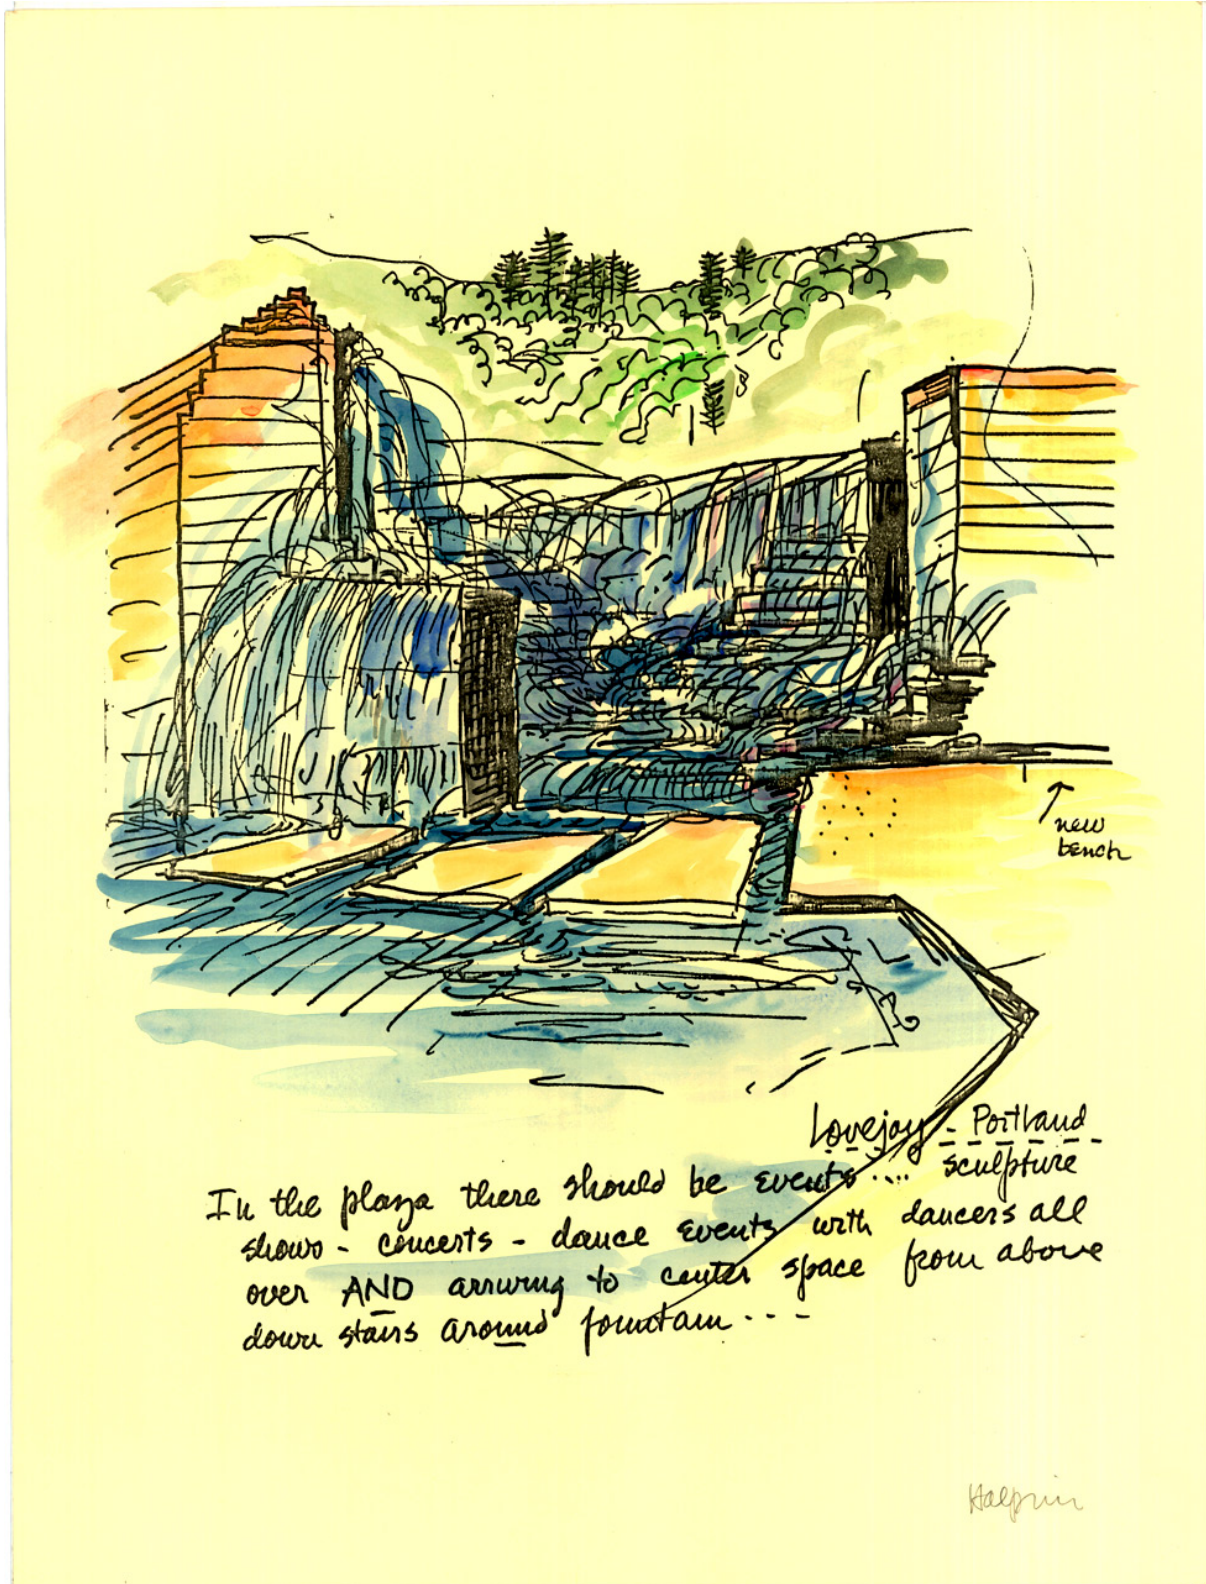 new
bench
Lovejoy - Portland
In the plaza there should be events .... sculpture
shows - concerts - dance events with dancers all
over AND arriving to center space from above
down stairs around fountain - - -
Halprin